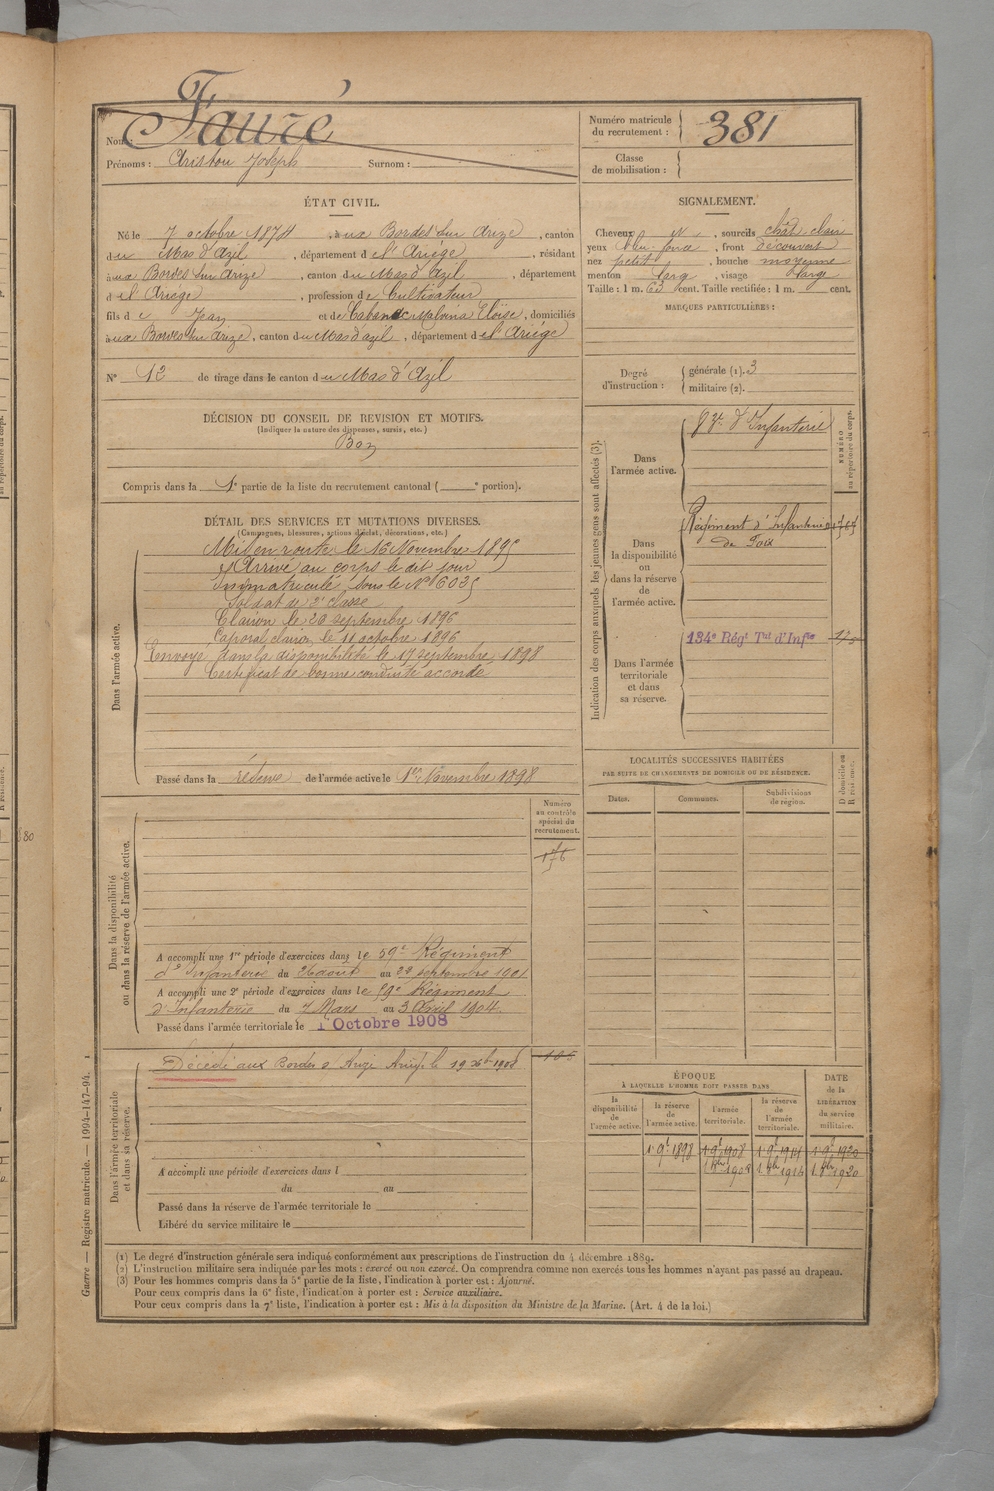 Nom : Fauré
Prénoms : Ariston Joseph Surnom :
Numéro matricule
du recrutement : 381
Classe
de mobilisation :
ÉTAT CIVIL.
Né le 7 octobre 1874, à ux Bordes sur Arize, canton
du Mas d'Azil, département de l'Ariége, résidant
à ux Bordes sur Arize, canton du Mas d'Azil, département
d el Ariége, profession de Cultivateur
fils de Jean et de Cabanac Malvina Eloïse, domiciliés
à ux Bordes sur Arize, canton du Mas d'azil, département de l'Ariége
N° 12 de tirage dans le canton du Mas d'Azil
DÉCISION DU CONSEIL DE REVISION ET MOTIFS.
(Indiquer la nature des dispenses, sursis, etc.)
Bon
Compris dans la 1e partie de la liste du recrutement cantonal ( e portion).
DÉTAIL DES SERVICES ET MUTATIONS DIVERSES.
(Campagnes, blessures, actions d'éclat, décorations, etc.)
Dans l'armée active.
Mis en route le 16 Novembre 1895
Arrivé au corps le dit jour
Immatriculé sous le N° 6035
Soldat de 2e classe
Clairon le 20 septembre 1896
Caporal clairon le 11 octobre 1896
Envoyé dans la disponibilité le 17 septembre 1898
Certificat de bonne conduite accordé
Passé dans la réserve de l'armée active le 1er Novembre 1898
SIGNALEMENT.
Cheveux , sourcils chât. clair
yeux , front découvert
nez petit, bouche moyenne
menton large, visage large
Taille : 1 m. 63 cent. Taille rectifiée : 1 m. cent.
MARQUES PARTICULIÈRES :
Degré
d'instruction :
générale (1). 3
militaire (2).
Indication des corps auxquels les jeunes gens sont affectés (3).
NUMÉRO
au répertoire du corps.
Dans
l'armée active.
d'Infanterie
Dans
la disponibilité
ou
dans la réserve
de
l'armée active.
Régiment d'Infanterie
de Foix
Dans l'armée
territoriale
et dans
sa réserve.
134e Régt Tal d'Infie
LOCALITÉS SUCCESSIVES HABITÉES
PAR SUITE DE CHANGEMENTS DE DOMICILE OU DE RÉSIDENCE.
Dates. Communes. Subdivisions
de région.
D domicile ou
R résidence.
Numéro
au contrôle
spécial du
recrutement.
176
Dans la disponibilité
ou dans la réserve de l'armée active.
A accompli une 1re période d'exercices dans le 59e Régiment
d'Infanterie du 26 août au 22 septembre 1901
A accompli une 2e période d'exercices dans le 59e Régiment
d'Infanterie du 7 Mars au 3 Avril 1904
Passé dans l'armée territoriale le 1 Octobre 1908
Dans l'armée territoriale
et dans sa réserve.
Décédé aux Bordes s Arize Ariège le 19 xbre 1908
A accompli une période d'exercices dans l
du au
Passé dans la réserve de l'armée territoriale le
Libéré du service militaire le
ÉPOQUE
À LAQUELLE L'HOMME DOIT PASSER DANS
DATE
de la
LIBÉRATION
du service
militaire.
la
disponibilité
de
l'armée active.
la réserve
de
l'armée active.
l'armée
territoriale.
la réserve
de
l'armée
territoriale.
1 9e 1898 1 9e 1908 1 9e 1914 1 9e 1920
1 8bre 1908 1 8bre 1914 1 8bre 1920
Guerre — Registre matricule. — 1994-147-94. 1
(1) Le degré d'instruction générale sera indiqué conformément aux prescriptions de l'instruction du 4 décembre 1889.
(2) L'instruction militaire sera indiquée par les mots : exercé ou non exercé. On comprendra comme non exercés tous les hommes n'ayant pas passé au drapeau.
(3) Pour les hommes compris dans la 5e partie de la liste, l'indication à porter est : Ajourné.
Pour ceux compris dans la 6e liste, l'indication à porter est : Service auxiliaire.
Pour ceux compris dans la 7e liste, l'indication à porter est : Mis à la disposition du Ministre de la Marine. (Art. 4 de la loi.)